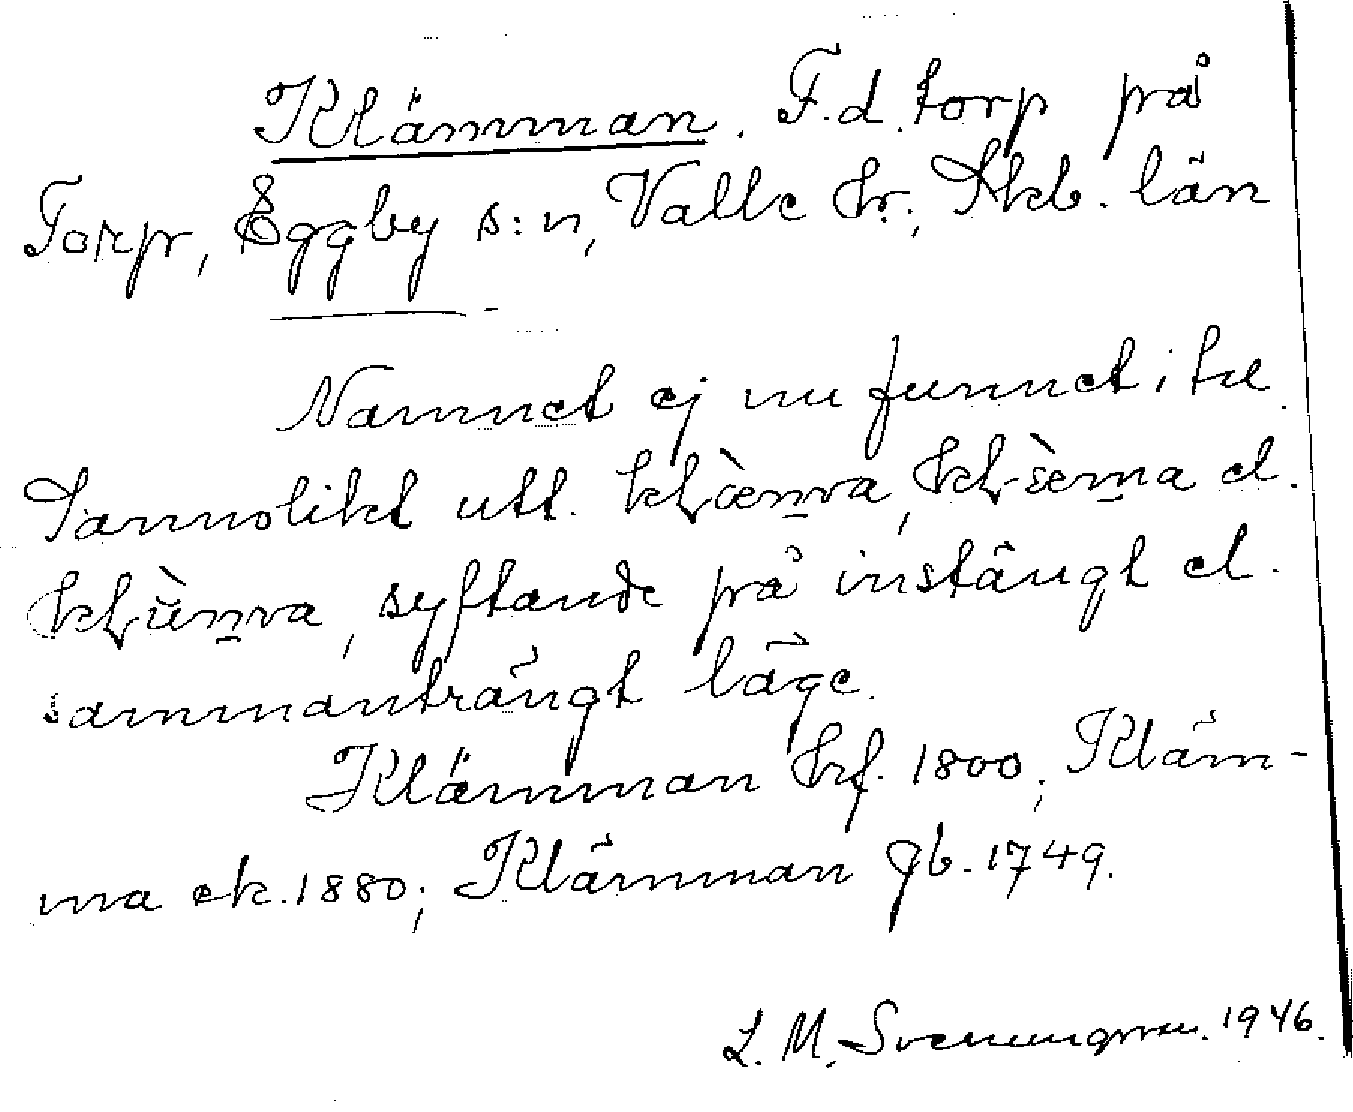 Klämman. F.d. torp på
Torp, Eggby s:n, Valle hr; Skb. län
Namnet ej nu funnet i tal.
Sannolikt utt. el.
syftande på instängt el.
sammanträngt läge.
Klämman hrf. 1800; Kläm-
ma ek. 1880; Klämman gb. 1749.
L. M. Svenungsson. 1946.